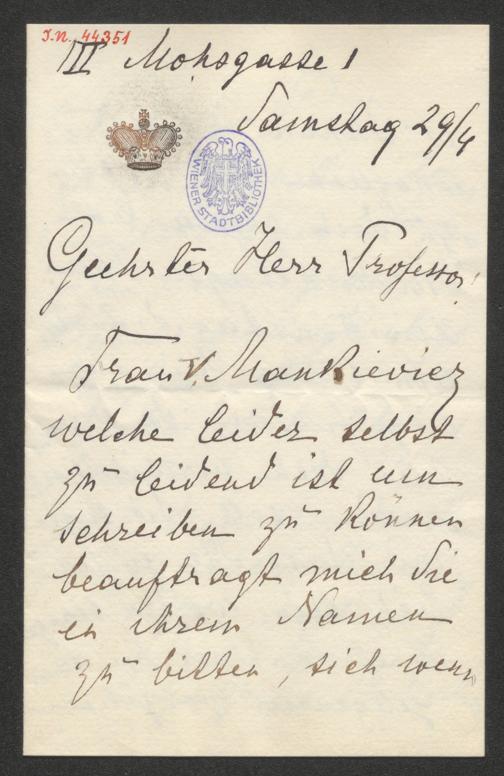 I.N. 44351
III Mohsgasse 1
Samstag 29/4
WIENER STADTBIBLIOTHEK
Geehrter Herr Professor!
Frau v. Mankievicz
welche leider selbst
zu leidend ist um
schreiben zu können
beauftragt mich Sie
in ihrem Namen
zu bitten, sich wenn